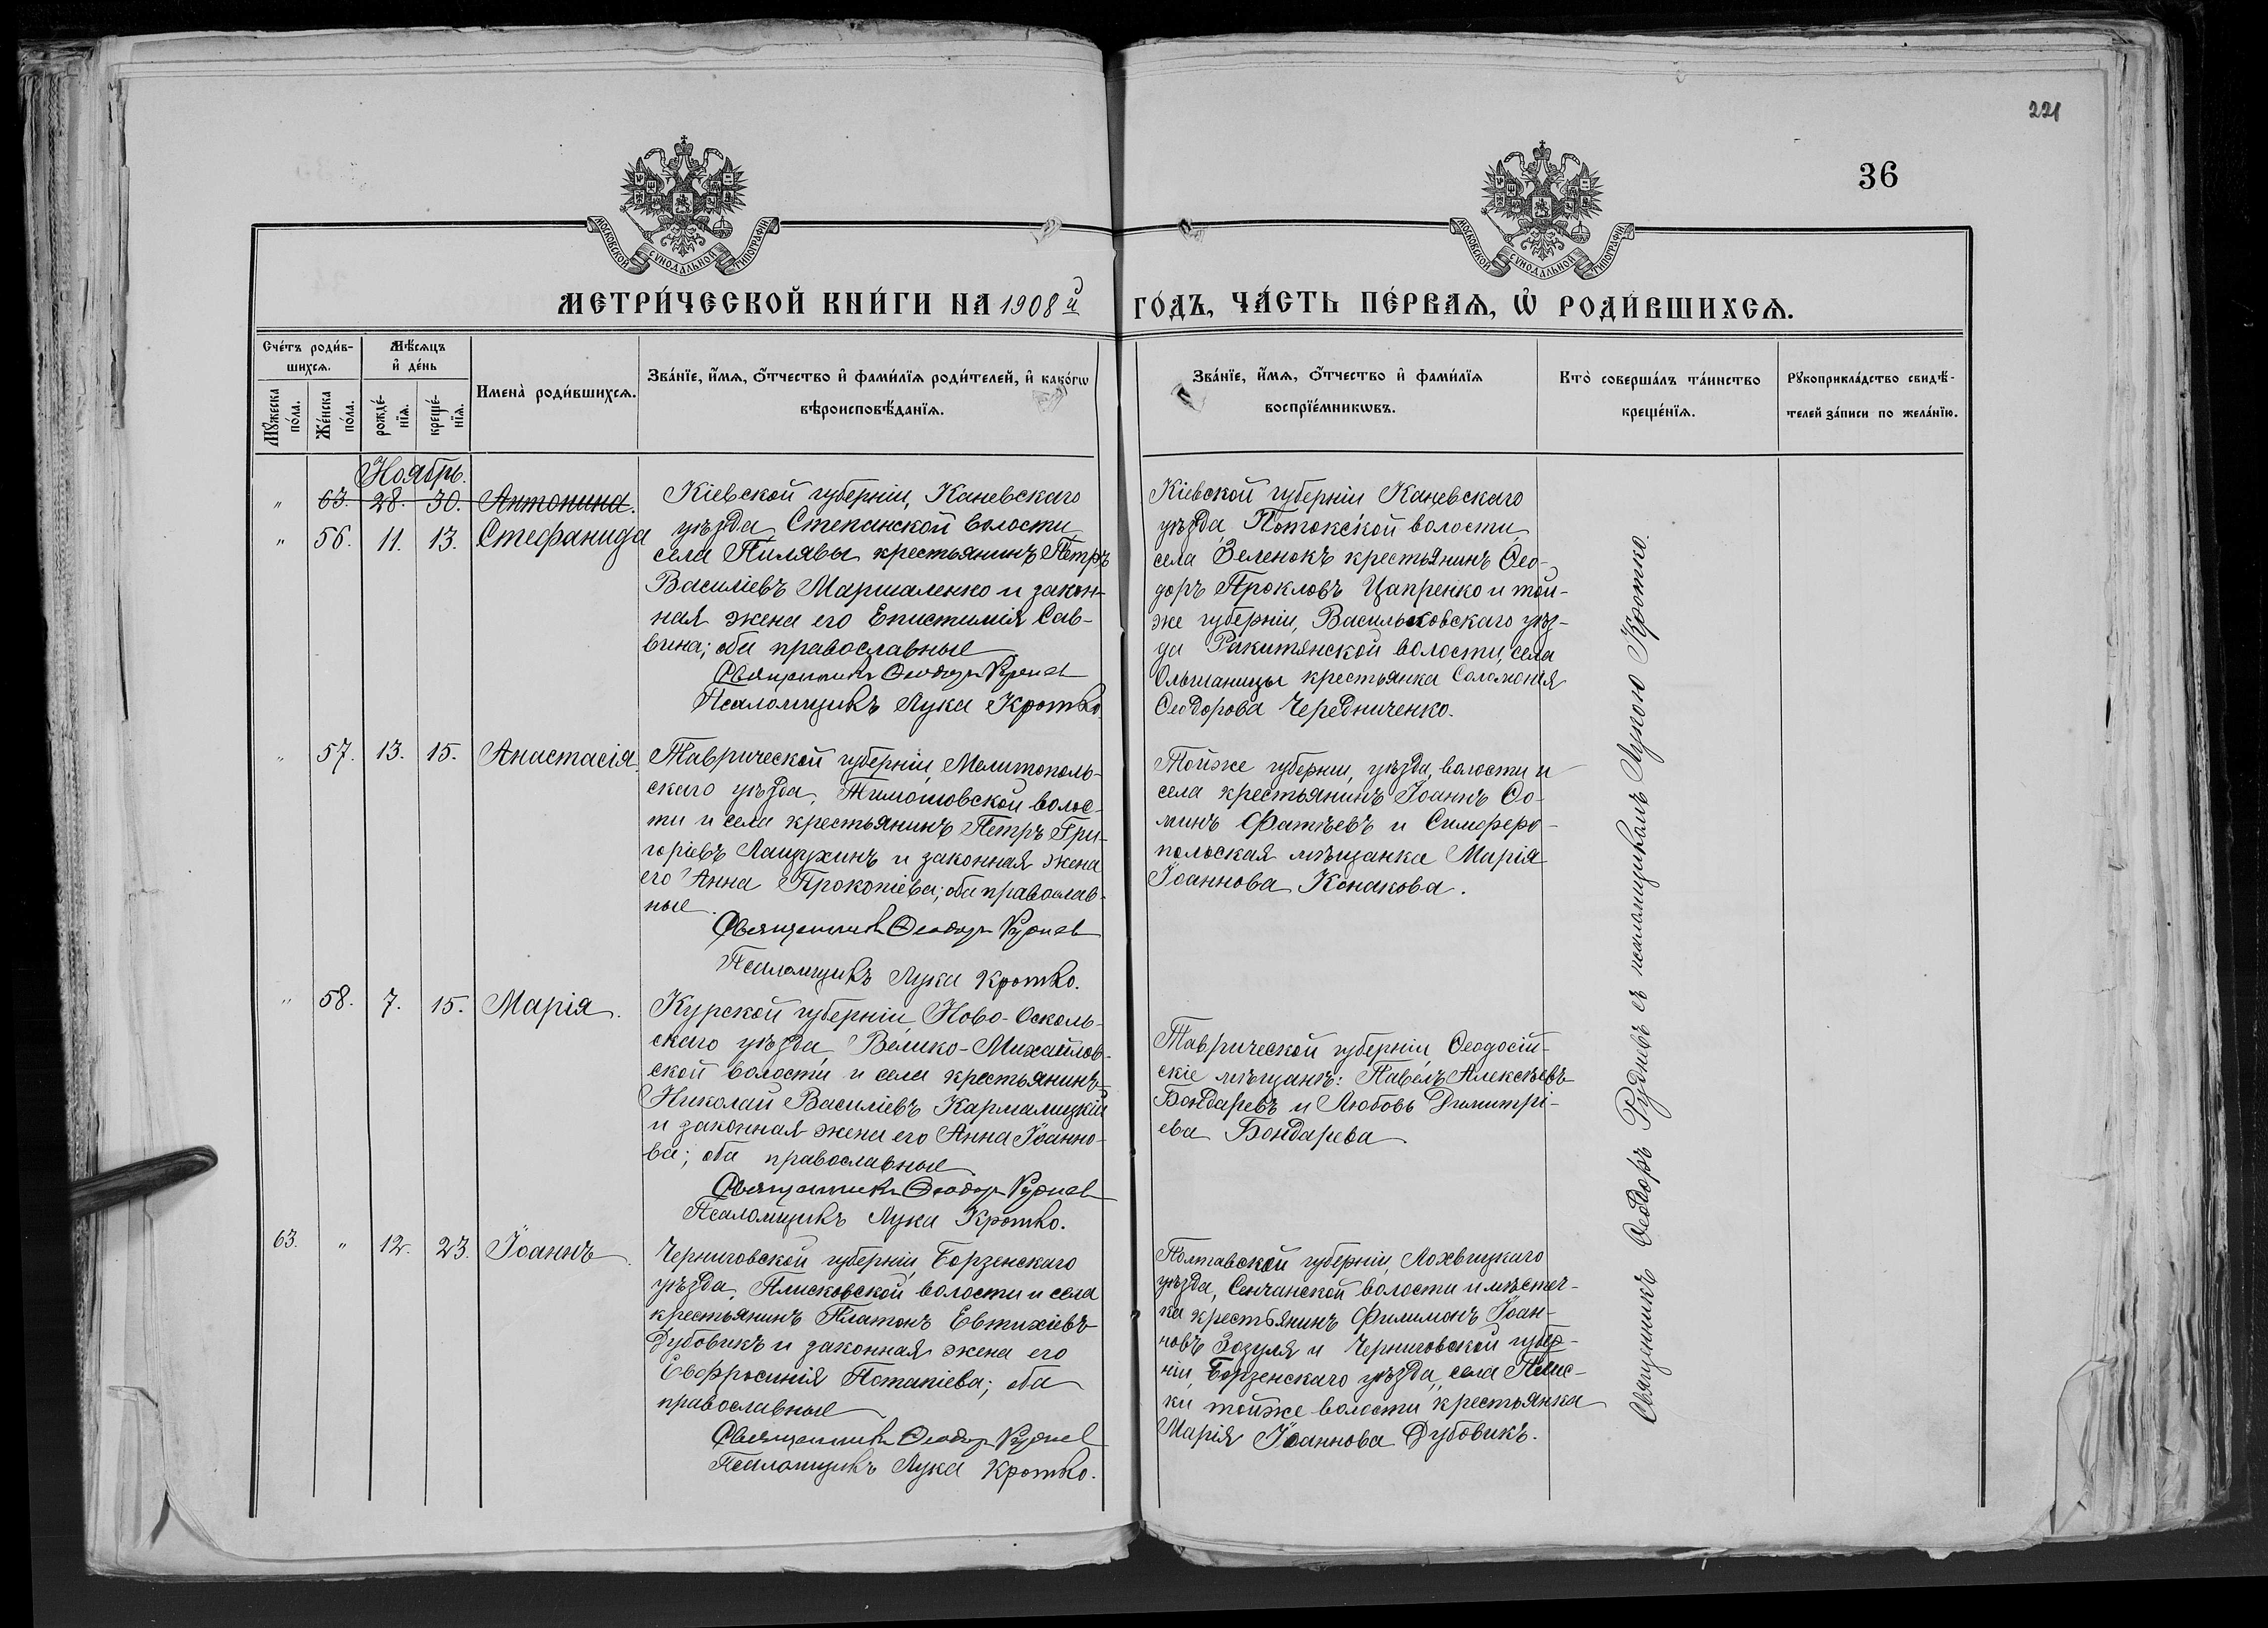 221
36
МОСКОВСКОЙ СѴНОДАЛЬНОЙ ТИПОГРАФІИ
МОСКОВСКОЙ СѴНОДАЛЬНОЙ ТИПОГРАФІИ
МЕТРИ́ЧЕСКОЙ КНИ́ГИ НА 1908 й
ГО́ДЪ, ЧА́СТЬ ПЕ́РВАѦ, Ѿ РОДИ́ВШИХСѦ.
Сче́тъ роди́в-
шихсѧ.
Мѣ́сѧцъ
и҆ де́нь
Мꙋ́жеска
по́ла.
Же́нска
по́ла.
рожде́-
нїѧ.
креще́-
нїѧ.
Имена̀ роди́вшихсѧ.
Зва́нїе, и҆́мѧ, ѻ҆́тчество и҆ фами́лїѧ роди́телей, и҆ како́гѡ
вѣроисповѣ́данїѧ.
Зва́нїе, и҆́мѧ, ѻ҆́тчество и҆ фами́лїѧ
воспрїе́мникѡвъ.
Кто̀ соверша́лъ та́инство
креще́нїѧ.
Рꙋкоприкла́дство свидѣ́-
телей за́писи по жела́нїю.
Ноябрь.
" 63. 28. 30. Антонина.
" 56. 11. 13. Стефанида
Кіевской губерніи, Каневскаго
уѣзда, Степанской волости,
села Пилявы крестьянинъ Петръ
Василіевъ Маршаленко и закон-
ная жена его Епистимія Сав-
вина; оба православные
Священникъ Ѳеодоръ Рудневъ
Псаломщикъ Лука Кротко.
Кіевской губерніи Каневскаго
уѣзда, Потокской волости,
села Зеленокъ крестьянинъ Ѳео-
доръ Прокловъ Цапренко и той-
же губерніи, Васильковскаго уѣз-
да Ракитянской волости, села
Ольшаницы крестьянка Соломонія
Ѳеодорова Чередниченко.
" 57. 13. 15. Анастасія.
Таврической губерніи, Мелитополь-
скаго уѣзда, Тимошовской волос-
ти и села крестьянинъ Петръ Гри-
горіевъ и законная жена
его Анна Прокопіева; оба православ-
ные.
Священникъ Ѳеодоръ Рудневъ
Псаломщикъ Лука Кротко.
Тойже губерніи, уѣзда, волости и
села крестьянинъ Іоаннъ Ѳо-
минъ Фатѣевъ и Симферо-
польская мѣщанка Марія
Іоаннова Конакова.
" 58. 7. 15. Марія.
Курской губерніи, Ново-Осколь-
скаго уѣзда, Велико-Михайлов-
ской волости и села крестьянинъ
Николай Василіевъ Кармалицкій
и законная жена его Анна Іоанно-
ва; оба православные
Священникъ Ѳеодоръ Рудневъ
Псаломщикъ Лука Кротко.
Таврической губерніи, Ѳеодосій-
скіе мѣщане: Павелъ Алексѣевъ
Бондаревъ и Любовь Димитрі-
ева Бондарева
63. " 12. 23. Іоаннъ.
Черниговской губерніи, Борзенскаго
уѣзда, Плисковской волости и села
крестьянинъ Платонъ Евтихіевъ
Дубовикъ и законная жена его
Евфросинія Потапіева; оба
православные
Священникъ Ѳеодоръ Рудневъ
Псаломщикъ Лука Кротко.
Полтавской губерніи, Лохвицкаго
уѣзда, Сенчанской волости и мѣстеч-
ка крестьянинъ Филимонъ Іоан-
новъ Зозуля и Черниговской губер-
ніи, Борзенскаго уѣзда, села Плис-
ки тойже волости крестьянка
Марія Іоаннова Дубовикъ.
Священникъ Ѳеодоръ Рудневъ съ псаломщикомъ Лукою Кротко.